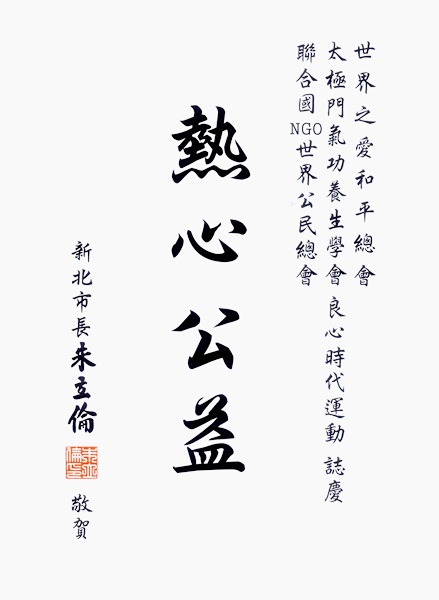 世界之愛和平總會
太極門氣功養生學會 良心時代運動 誌慶
聯合國NGO世界公民總會
熱心公益
新北市長 朱立倫 敬賀
朱立倫印